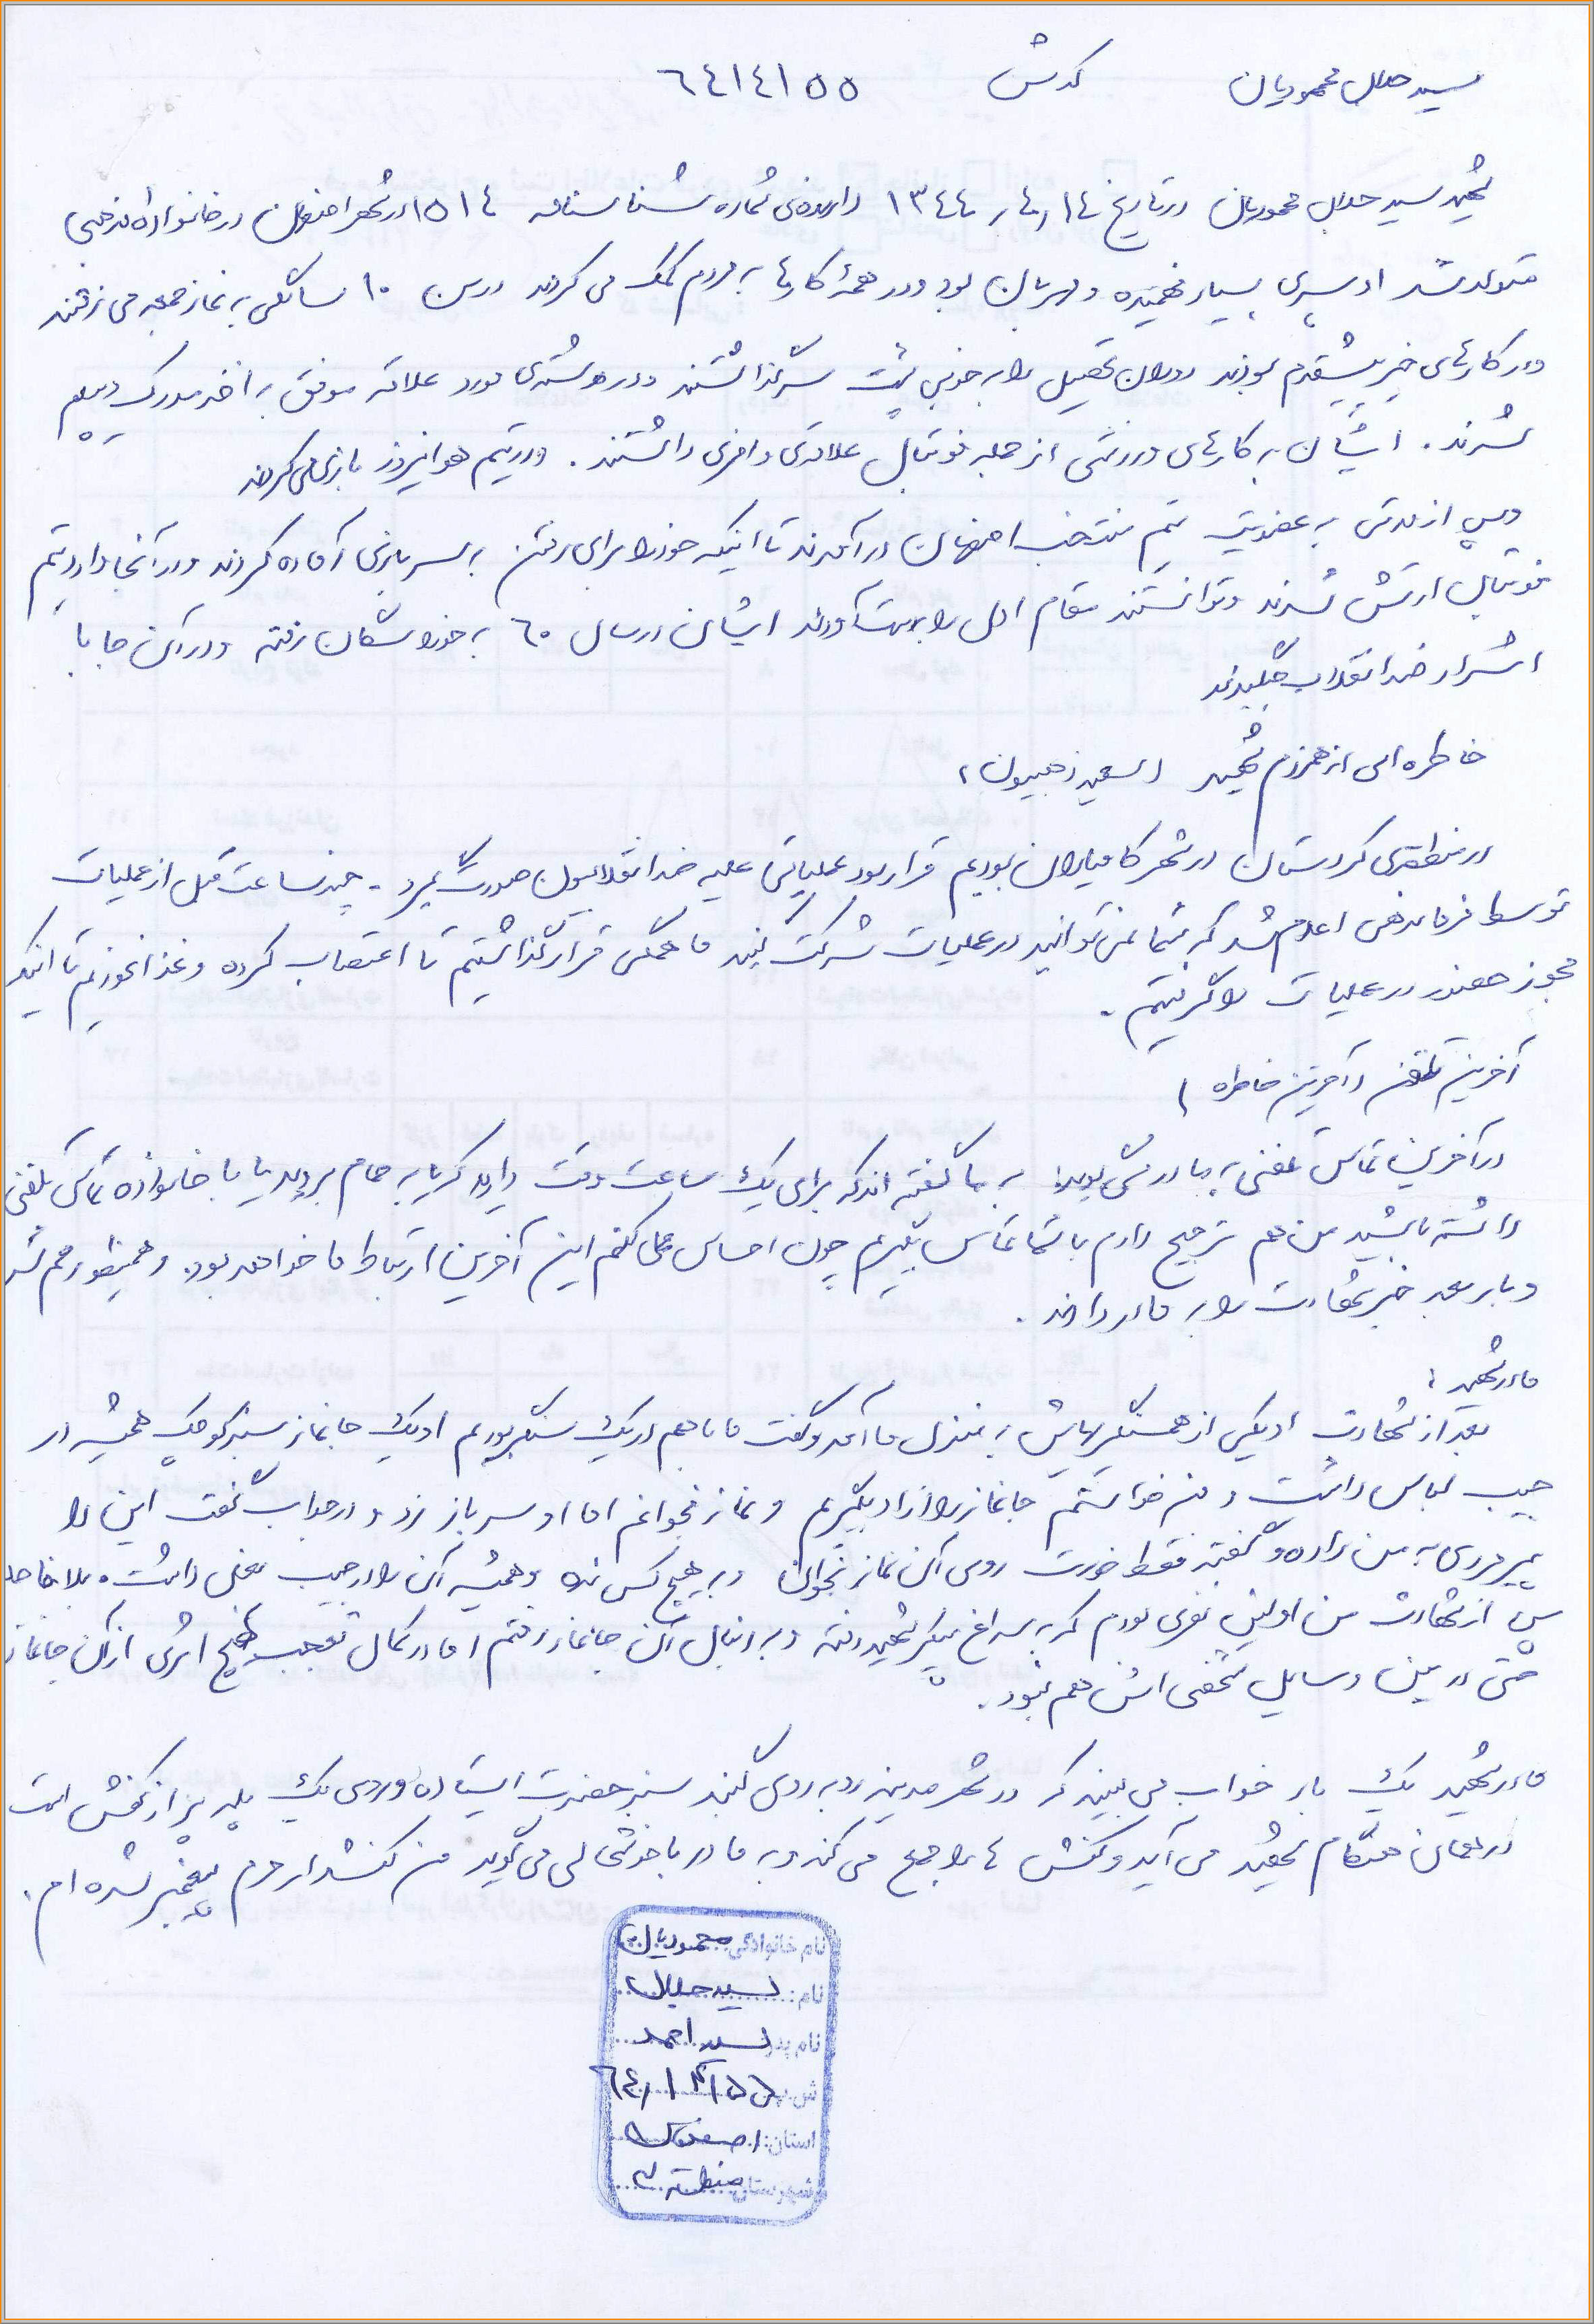 سید جلال محمودیان کدش ٦٤١٤١٥٥
شهید سید جلال محمودیان در تاریخ ١٣٤٤/٤/١٤ دارنده‌ی شماره شناسنامه ١٥١٤ در شهر اصفهان در خانواده مذهبی
متولد شد او پسری بسیار فهمیده و مهربان بود و در همهٔ کارها به مردم کمک می کردند در سن ١٠ سالگی به نماز جمعه می رفتند
و در کارهای خیر پیشقدم بودند دوران تحصیل را به خوبی پشت سر گذاشتند و در رشته‌ی مورد علاقه موفق به اخذ مدرک دیپلم
شدند. ایشان به کارهای ورزشی از جمله فوتبال علاقه‌ی وافری داشتند. و در تیم هوانیروز بازی می کردند
و پس از مدتی به عضویت تیم منتخب اصفهان در آمدند تا اینکه خود را برای رفتن به سربازی آماده کردند و در آنجا وارد تیم
فوتبال ارتش شدند و توانستند مقام اول را بدست آورند ایشان در سال ٦٠ به خود اشکان رفته و در آن جا با
اشرار ضد انقلاب جنگیدند
خاطره ای از همرزم شهید (سعید ذهبیون)
در منطقه‌ی کردستان در شهر کامیاران بودیم قرار بود عملیاتی علیه ضد انقلابیون صورت بگیرد. چند ساعت قبل از عملیات
توسط فرماندهی اعلام شد که شما نمی توانید در عملیات شرکت کنید ما همگی قرار گذاشتیم تا اعتصاب کرده و غذا نخوریم تا اینکه
مجوز حضور در عملیات را گرفتیم.
آخرین تلفن و آخرین خاطره)
در آخرین تماس تلفنی به مادرش گوید: به ما گفته اند که برای یک ساعت وقت دارید که یا به حمام بروید یا با خانواده تماس تلفنی
داشته باشید من هم ترجیح دادم با شما تماس بگیرم چون احساس می کنم این آخرین ارتباط ما خواهد بود. و همینطور هم شد
و بار بعد خبر شهادت را به مادر دادند.
مادر شهید:
بعد از شهادت او یکی از همسنگرهایش به منزل ما آمد و گفت ما با هم در یک سنگر بودیم او یک جانماز سبز کوچک همیشه در
جیب لباس داشت و من خواستم جانماز را از او بگیرم و نماز بخوانم اما او سر باز زد و در جواب گفت این را
پیرمردی به من داده و گفته فقط خودت روی آن نماز بخوان و به هیچ کس نده و همیشه آن را در جیب بغلی داشت. بلافاصله
پس از شهادت من اولین نفری بودم که به سراغ پیکر شهید رفته و به دنبال آن جانماز رفتم اما در کمال تعجب هیچ اثری از آن جانماز
حتی در بین وسایل شخصی اش هم نبود.
مادر شهید یک بار خواب می بیند که در شهر مدینه رو به روی گنبد سبز حضرت ایستاده و روی یک پله پر از کفش است
در همان هنگام شهید می آید و کفش ها را جمع می کند و به مادر با خوشحالی می گوید من کفشدار حرم پیغمبر شده ام.
نام خانوادگی: محمودیان
نام: سید جلال
نام پدر: سید احمد
ش پ: ٦٤١٤١٥٥
استان: اصفهان
شهرستان: منطقه ٢